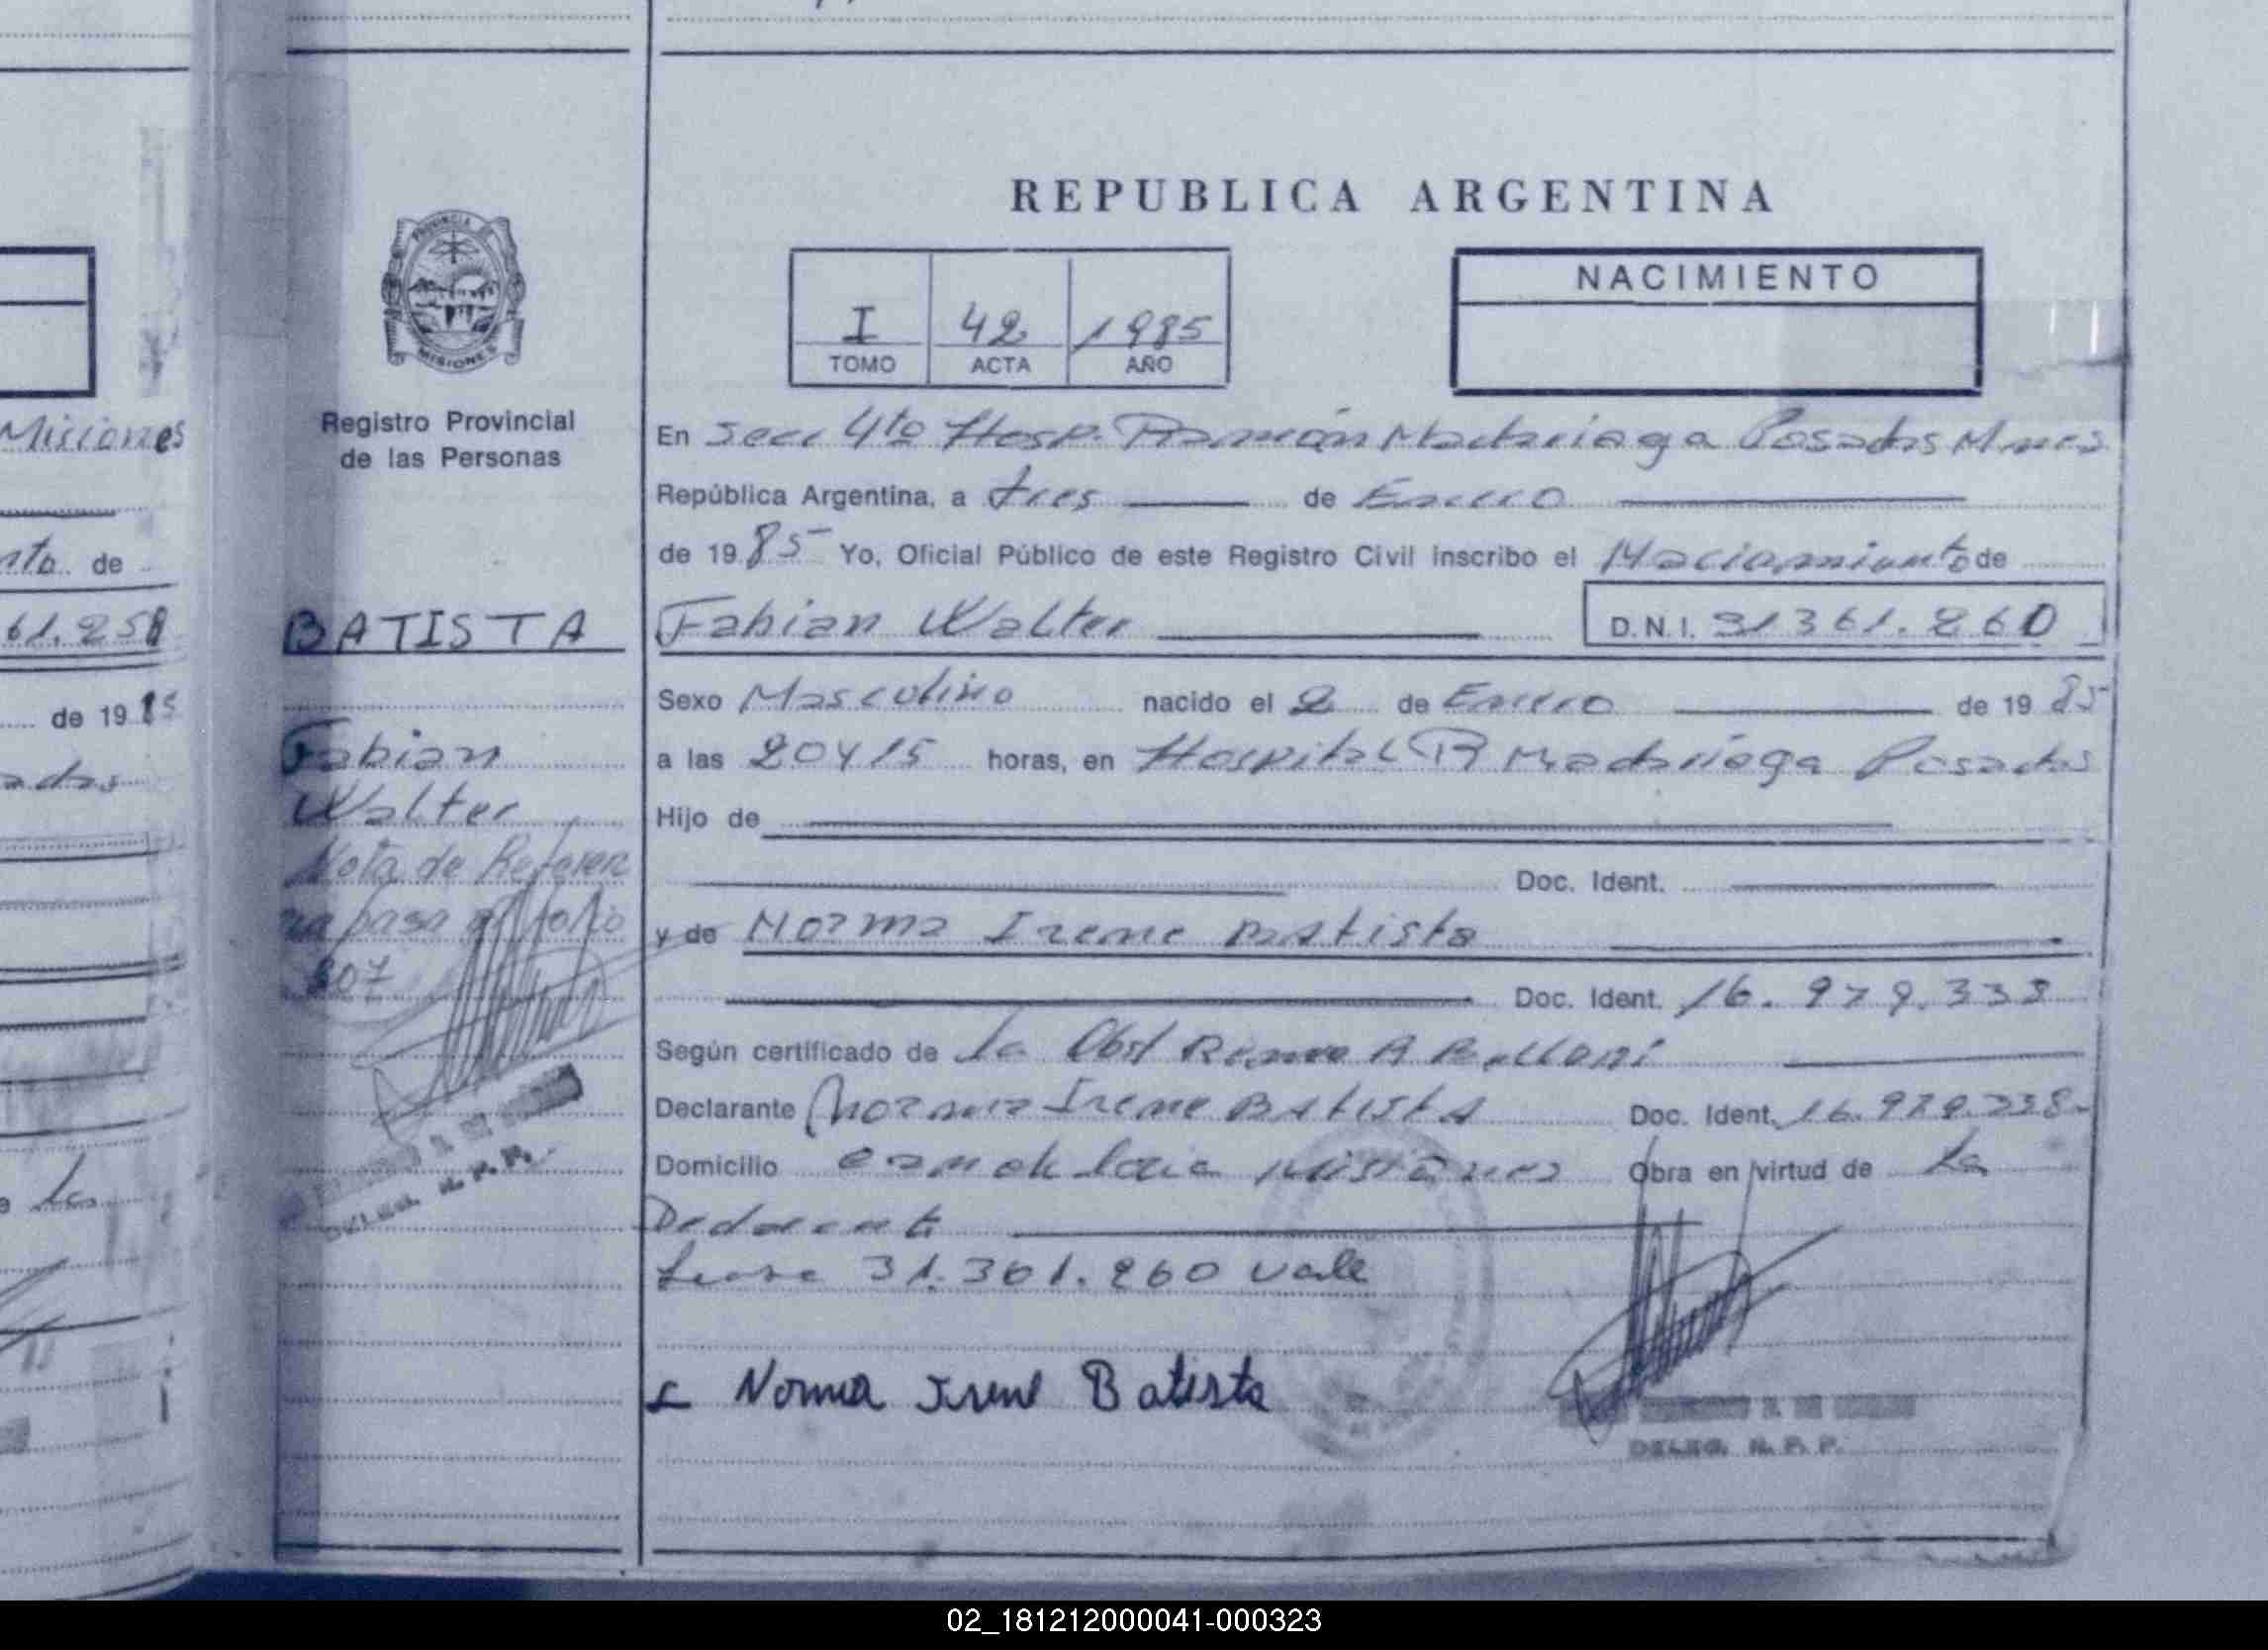 REPUBLICA ARGENTINA
PROVINCIA DE
MISIONES
Registro Provincial
de las Personas
I 42 1985
TOMO ACTA AÑO
NACIMIENTO
Misiones
nto de
61.258
de 19 85
adas
la
BATISTA
Fabian
Walter
Nota de Referen
cia pasa al folio
307
En Secc 4to Hosp. Ramón Madariaga Posadas Mnes
República Argentina, a tres de Enero
de 19 85 Yo, Oficial Público de este Registro Civil inscribo el Naciamiento de
Fabian Walter D.N.I. 31361.260
Sexo Masculino nacido el 2 de Enero de 19 85
a las 20y15 horas, en Hospital R Madariaga Posadas
Hijo de
Doc. Ident.
y de Norma Irene Batista
Doc. Ident. 16.979.338
Según certificado de la Obst A
Declarante Norma Irene Batista Doc. Ident. 16.979.338
Domicilio Candelaria Misiones Obra en virtud de la
31.361.260 vale
Norma Irene Batista
DELEG. R. P. P.
DELEG. R. P. P.
02_181212000041-000323